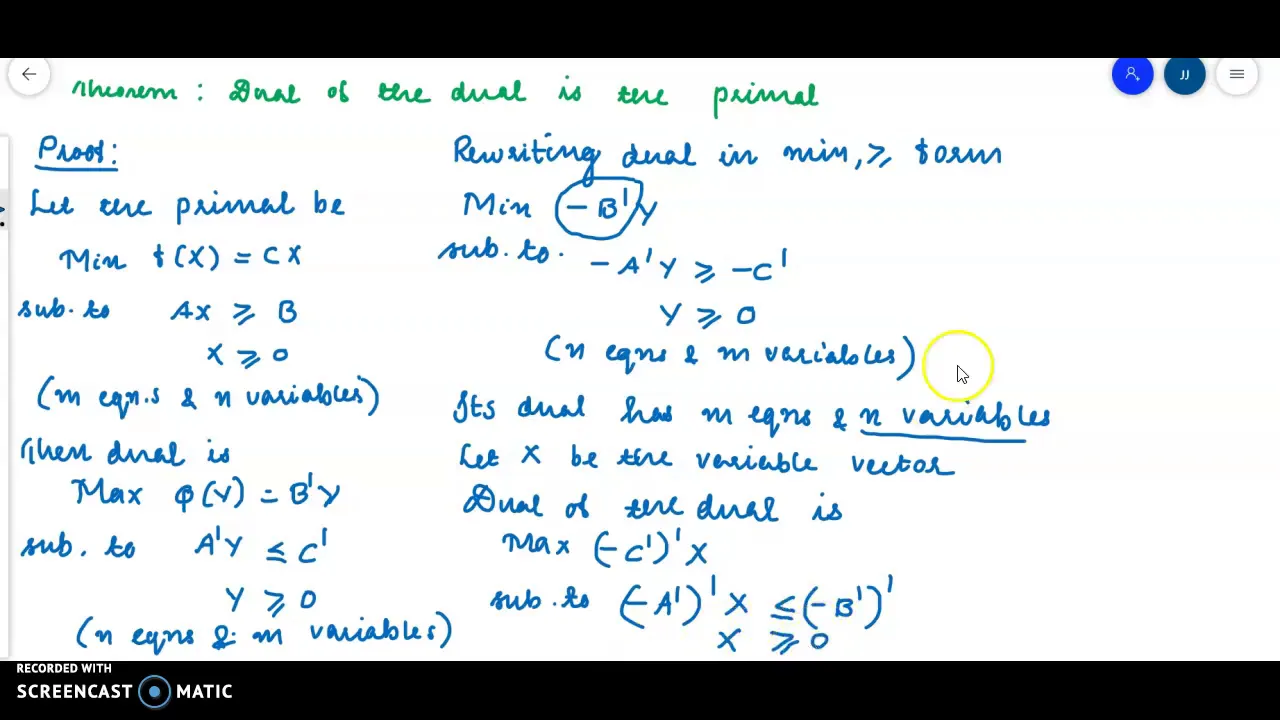 Theorem : Dual of the dual is the primal
Proof:
Let the primal be
Min f(X) = CX
sub. to AX ⩾ B
X ⩾ 0
(m eqn.s & n variables)
Then dual is
Max φ(Y) = B'Y
sub. to A'Y ≤ C'
Y ⩾ 0
(n eqns & m variables)
Rewriting dual in min, ⩾ form
Min -B'Y
sub. to. -A'Y ⩾ -C'
Y ⩾ 0
(n eqns & m variables)
Its dual has m eqns & n variables
Let X be the variable vector
Dual of the dual is
Max (-C')'X
sub. to (-A')'X ≤ (-B')'
X ⩾ 0
JJ
RECORDED WITH
SCREENCAST MATIC